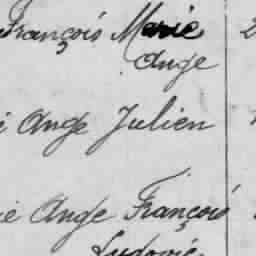 François Marie
Ange
Ange Julien
Ange François
Ludovic